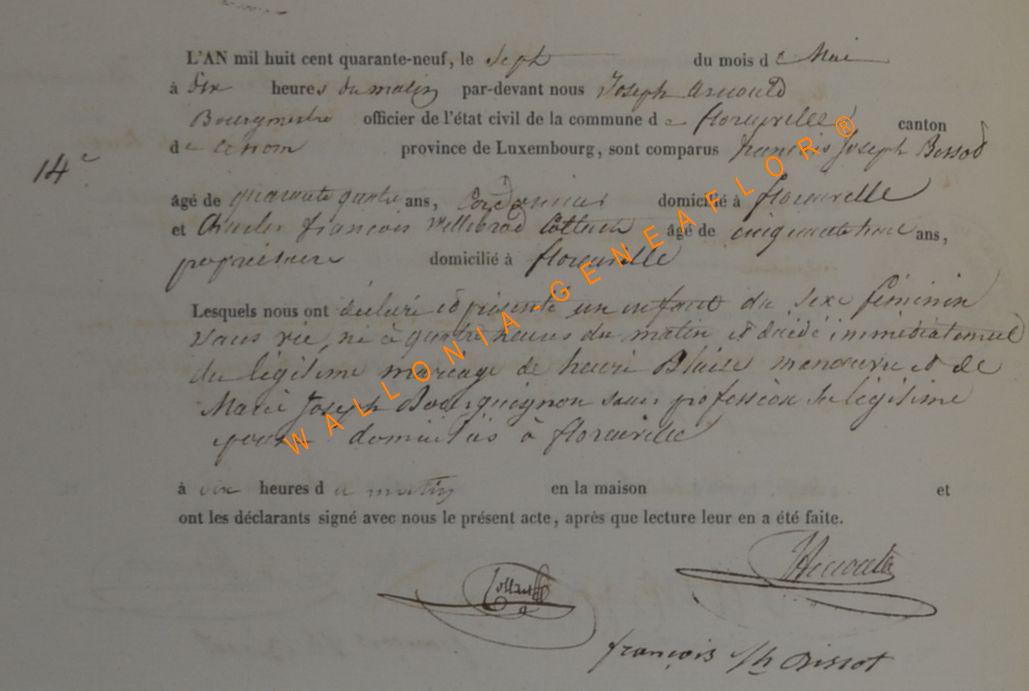 L'AN mil huit cent quarante-neuf, le Sept du mois d e Mai
à dix heures du matin par-devant nous Joseph Arnould
Bourgmestre officier de l'état civil de la commune d e florenville canton
14e
d e province de Luxembourg, sont comparus françois Joseph Bissot
âgé de quarante quatre ans, Cordonnier domicilié à florenville
et Charles françois Willibrod Collard âgé de ans,
propriétaire domicilié à florenville
Lesquels nous ont déclaré et présenté un enfant du sexe féminin
sans vie, né à quatre heures du matin et décédé immédiatement
du légitime mariage de henri Blaise manœuvre et de
Marie Joseph Bourguignon sans profession sa légitime
épouse domiciliés à florenville
à dix heures d u matin en la maison et
ont les déclarants signé avec nous le présent acte, après que lecture leur en a été faite.
JArnould
Collard
françois Jh Bissot
WALLONIA GENEAFLOR ®